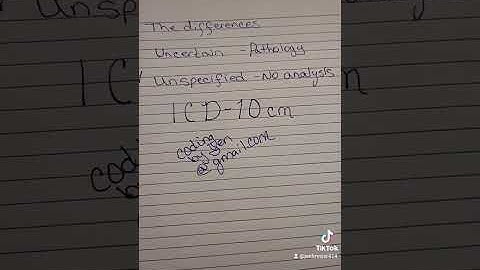 The differences
Uncertain - Pathology
Unspecified - No analysis
ICD-10cm
coding
by Jen
@gmail.com
TikTok